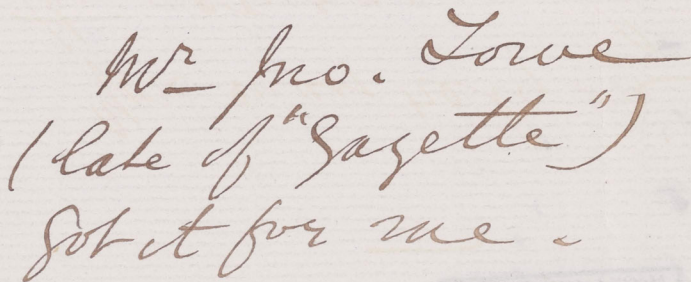 Mr Jno. Lowe
(late of "Gazette")
got it for me.